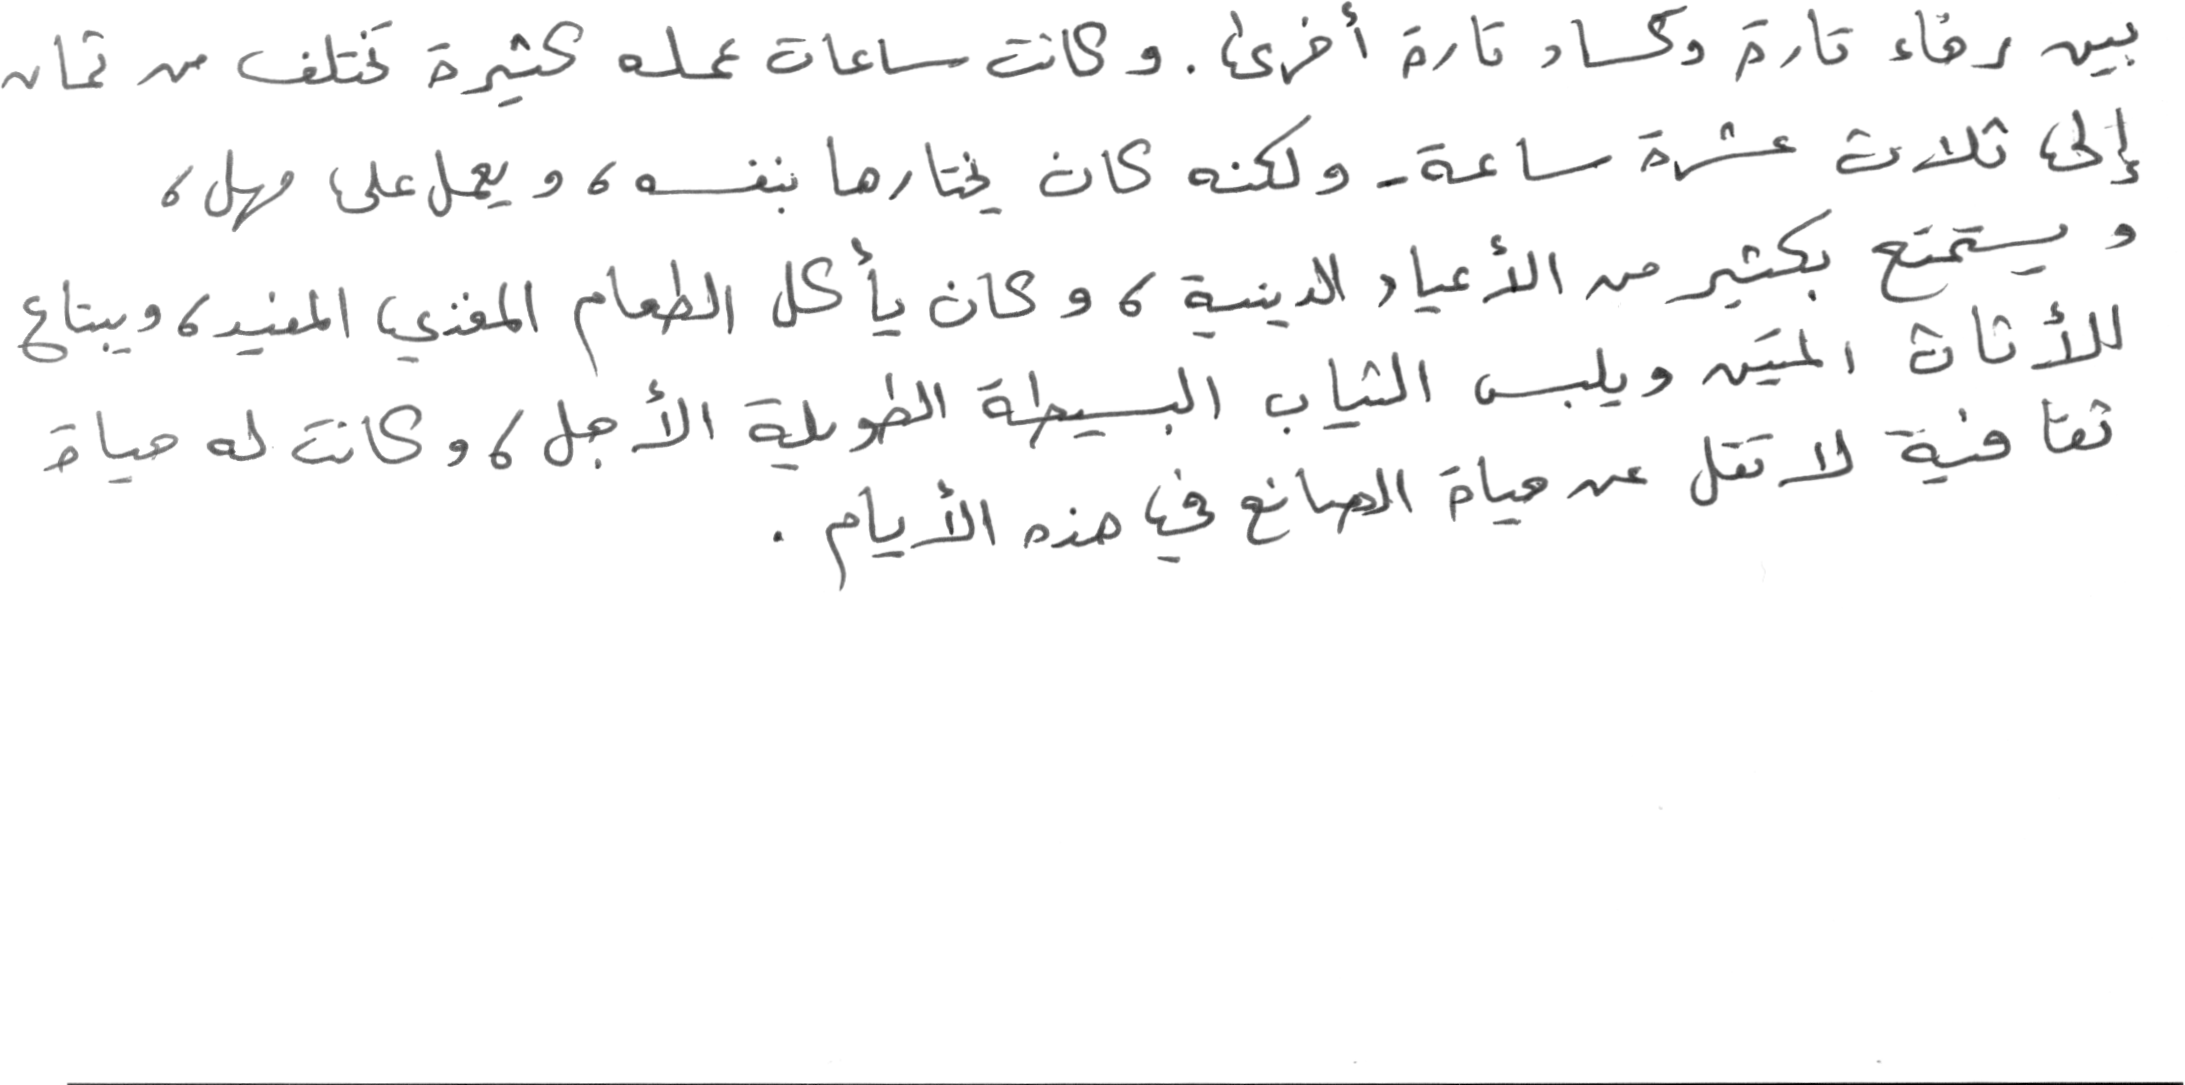 بين رخاء تارة وكساد تارة أخرى. وكانت ساعات عمله كثيرة تختلف من ثمان
إلى ثلاث عشرة ساعة - ولكنه كان يختارها بنفسه، ويعمل على مهل،
ويستمتع بكثير من الأعياد الدينية، وكان يأكل الطعام المغذي المفيد، ويبتاع
للأثاث المتين ويلبس الثياب البسيطة الطويلة الأجل، وكانت له حياة
ثقافية لا تقل عن حياة الصانع في هذه الأيام.